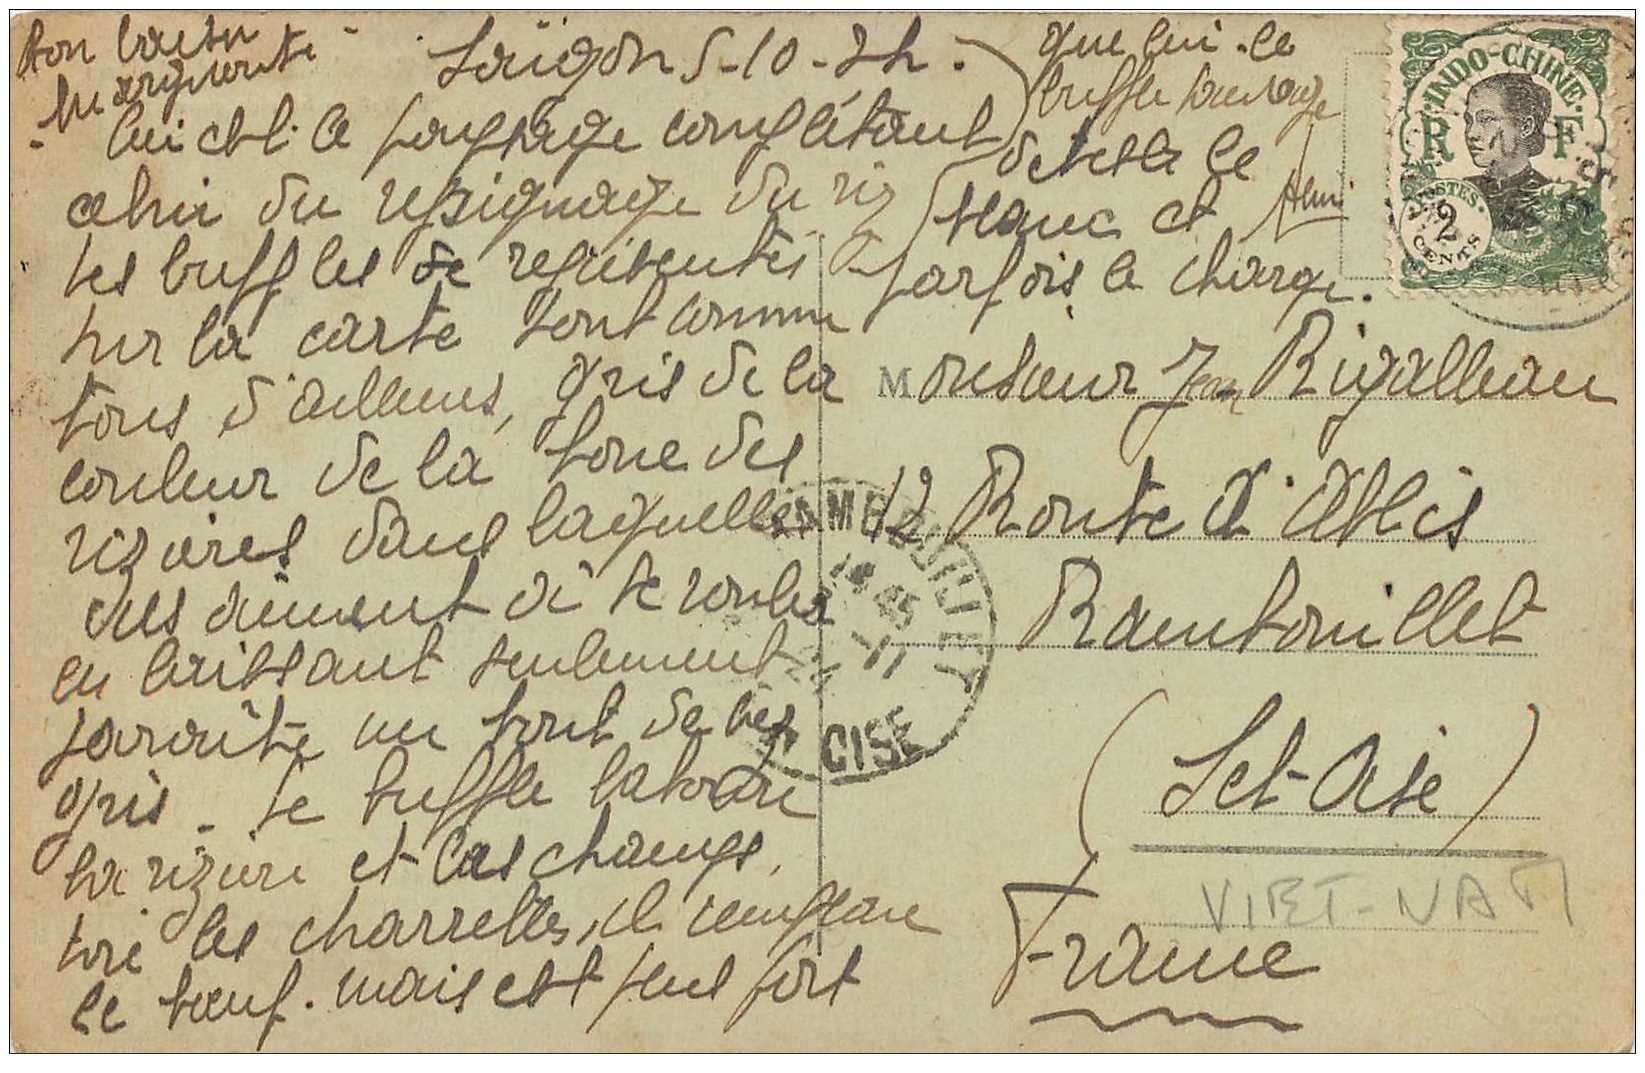 Saïgon 5-10-24.
Ceci est le paysage complétant
celui du repiquage du riz
Les buffles représentés
sur la carte sont comme
tous d'ailleurs, gris de la
couleur de la boue des
rizières dans laquelle
ils aiment à se rouler
en laissant seulement
paraître un bout de nez
gris - Le buffle laboure
la rizière et les champs,
tire les charrettes, il remplace
le bœuf. mais est plus fort
que lui - le
buffle sauvage
déteste le
blanc et
parfois le charge.
Marguerite
INDO-CHINE
R F
POSTES
2
CENTS
Monsieur Jean Rigalleau
12 Route d'Ablis
Rambouillet
(Set-Oise)
France
VIET-NAM
RAMBOUILLET
OISE